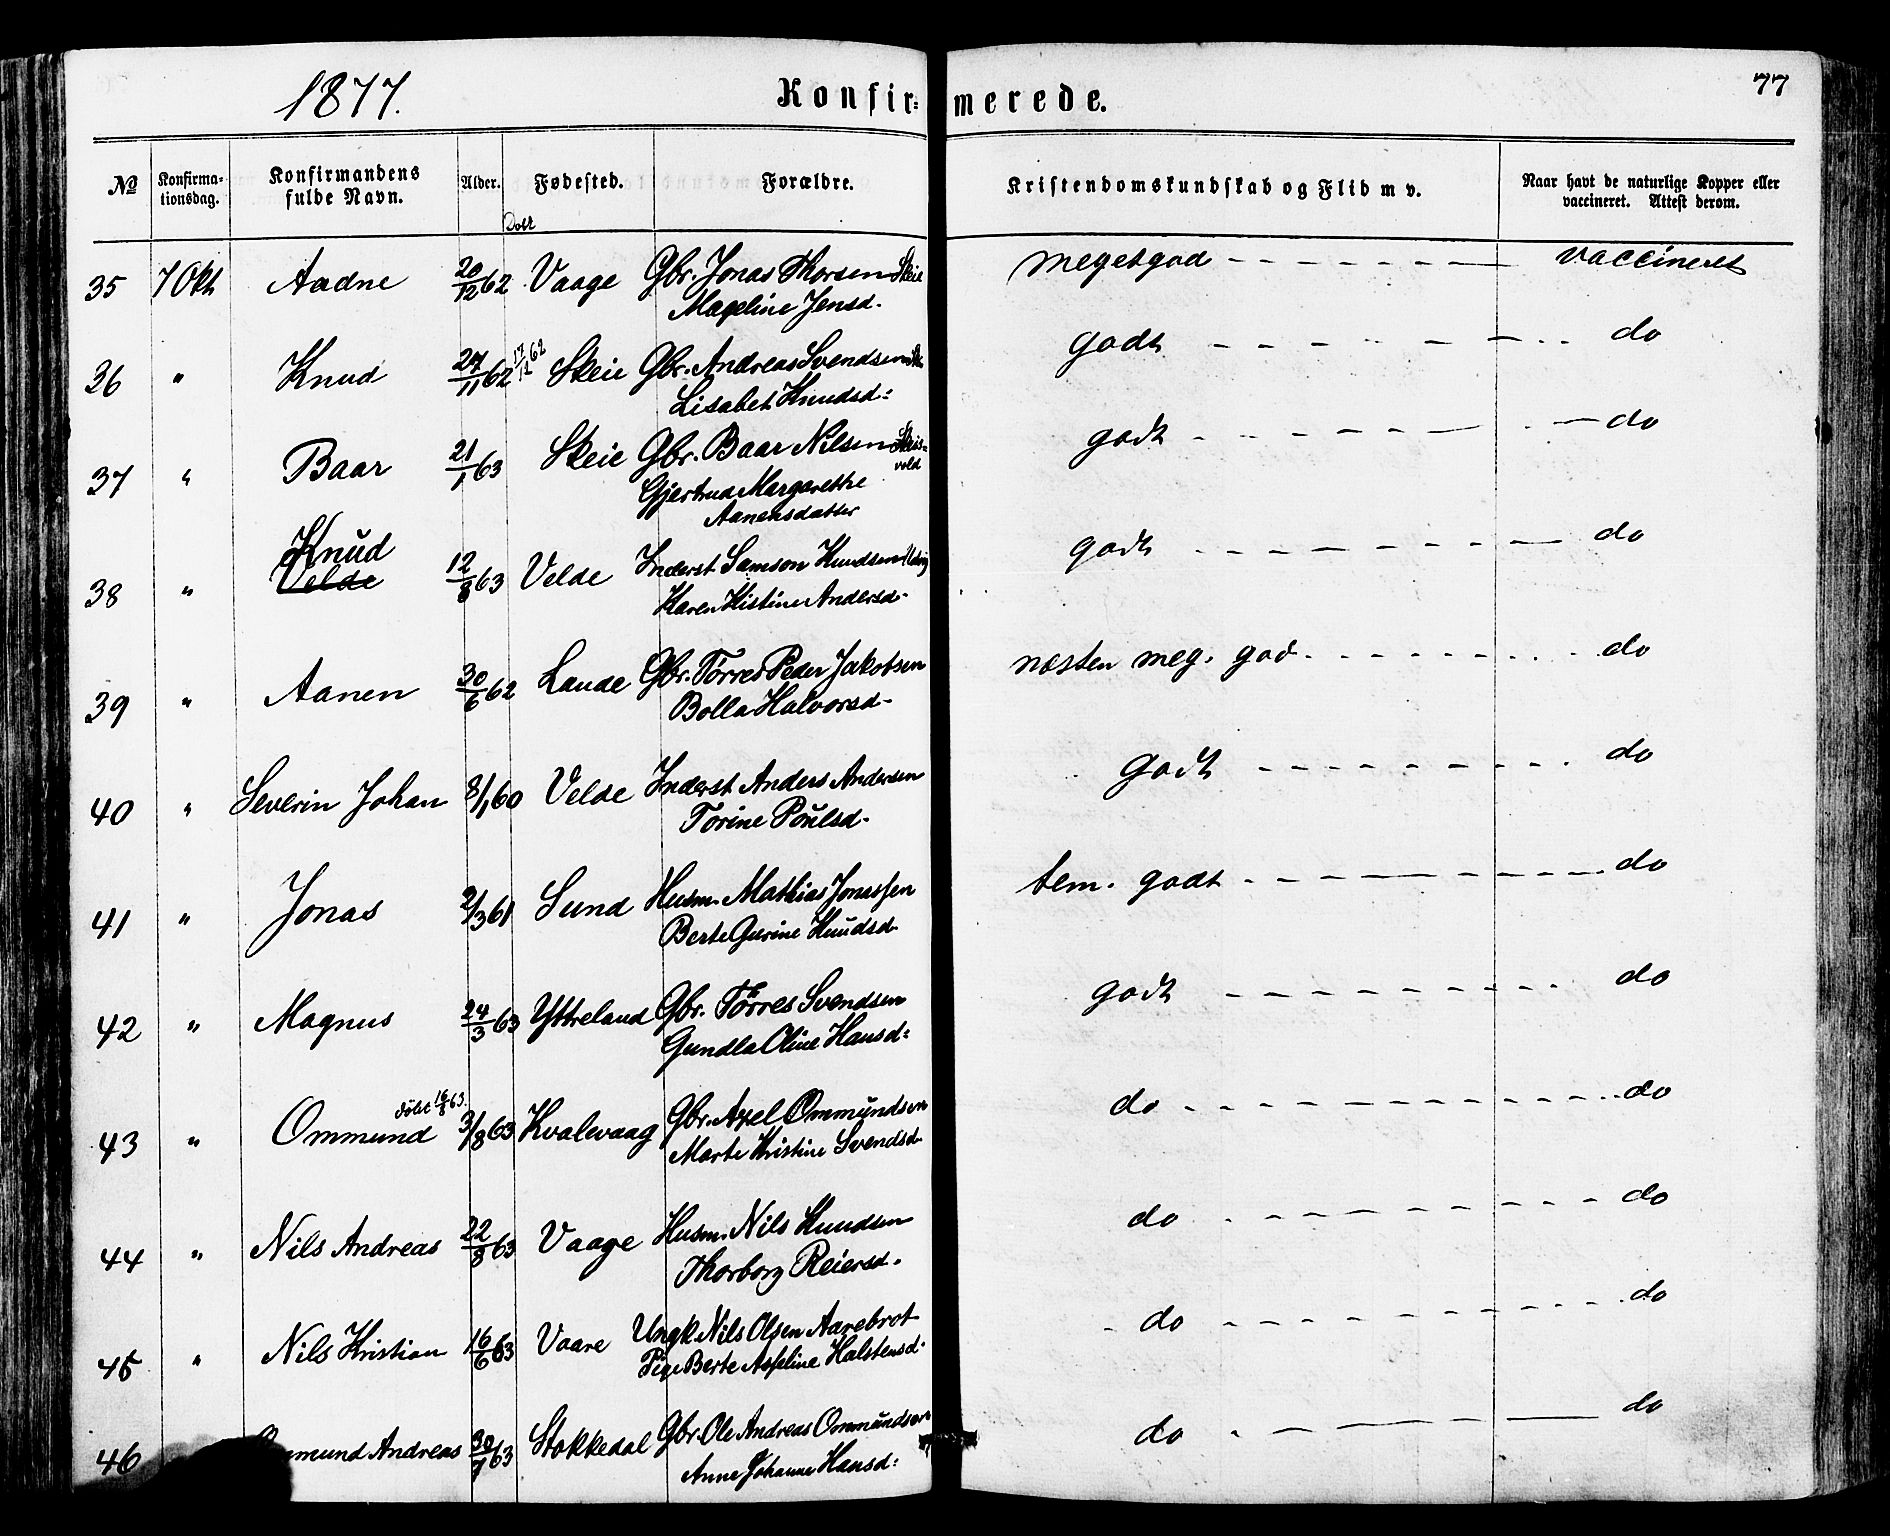 1877.
Konfir-merede.
77
No
Konfirma-tionsdag.
Konfirmandens fulde Navn.
Alder.
Fødested.
Forældre.
Kristendomskundskab og Flid m v.
Naar havt de naturlige Kopper eller vaccineret. Attest derom.
Døbt
35 7 Okt Aadne 20/12 62 Vaage Gbr. Jonas Thorsen Skeie megetgod vaccineret
Mageline Jensd.
36 " Knud 27/11 62 17/12 62 Skeie Gbr. Andreas Svendsen godt do
Lisabet Knudsd:
37 " Baar 21/1 63 Skeie Gbr. Baar Nilsen godt do
Gjertrud Margarethe
Aanensdatter
Knud
38 " Velde 12/8 63 Velde Inderst Samson Knudsen godt do
Karen Kistine Andersd.
39 " Aanen 30/6 62 Lande Gbr. Tørres Peder Jakobsen næsten meg. god do
Bolla Halvorsd.
40 " Severin Johan 8/1 60 Velde Inderst Anders Andersen godt do
Torine Poulsd.
41 " Jonas 2/3 61 Sund Husm. Mathias Jonassen tem. godt do
Berte Gurine Knudsd.
42 " Magnus 24/3 63 Yttreland Gbr. Tørres Svendsen godt do
Gundla Oline Hansd:
døbt 16/8 63.
43 " Ommund 3/8 63 Kvalevaag Gbr. Axel Ommundsen do do
Marte Kristine Svendsd.
44 " Nils Andreas 22/8 63 Vaage Husm. Nils Knudsen do do
Thorborg Reiersd.
45 " Nils Kristian 16/6 63 Vaare Ungk Nils Olsen Aarebrot do do
Pige Berte Asseline Halstensd.
46 Andreas 30/7 63 Stokkedal Gbr. Ole Andreas Ommundsen do do
Anne Johanne Hansd: